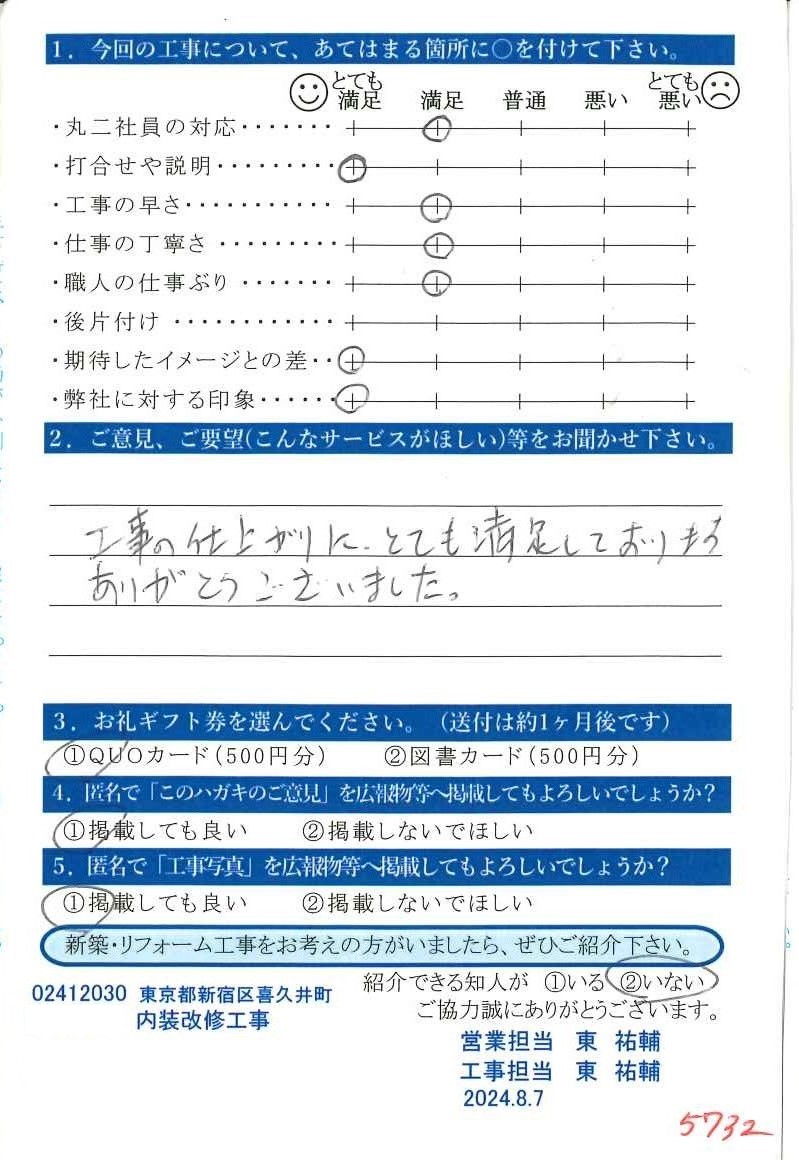 1. 今回の工事について、あてはまる箇所に○を付けて下さい。
とても満足 満足 普通 悪い とても悪い
・丸二社員の対応・・・・・・・
・打合せや説明・・・・・・・・・
・工事の早さ・・・・・・・・・・・
・仕事の丁寧さ・・・・・・・・・
・職人の仕事ぶり・・・・・・・
・後片付け・・・・・・・・・・・・
・期待したイメージとの差・・
・弊社に対する印象・・・・・・
2. ご意見、ご要望(こんなサービスがほしい)等をお聞かせ下さい。
工事の仕上がりに、とても満足しております
ありがとうございました。
3. お礼ギフト券を選んでください。(送付は約1ヶ月後です)
①QUOカード(500円分) ②図書カード(500円分)
4. 匿名で「このハガキのご意見」を広報物等へ掲載してもよろしいでしょうか?
①掲載しても良い ②掲載しないでほしい
5. 匿名で「工事写真」を広報物等へ掲載してもよろしいでしょうか?
①掲載しても良い ②掲載しないでほしい
新築・リフォーム工事をお考えの方がいましたら、ぜひご紹介下さい。
紹介できる知人が ①いる ②いない
02412030 東京都新宿区喜久井町
ご協力誠にありがとうございます。
内装改修工事
営業担当 東 祐輔
工事担当 東 祐輔
2024.8.7
5732